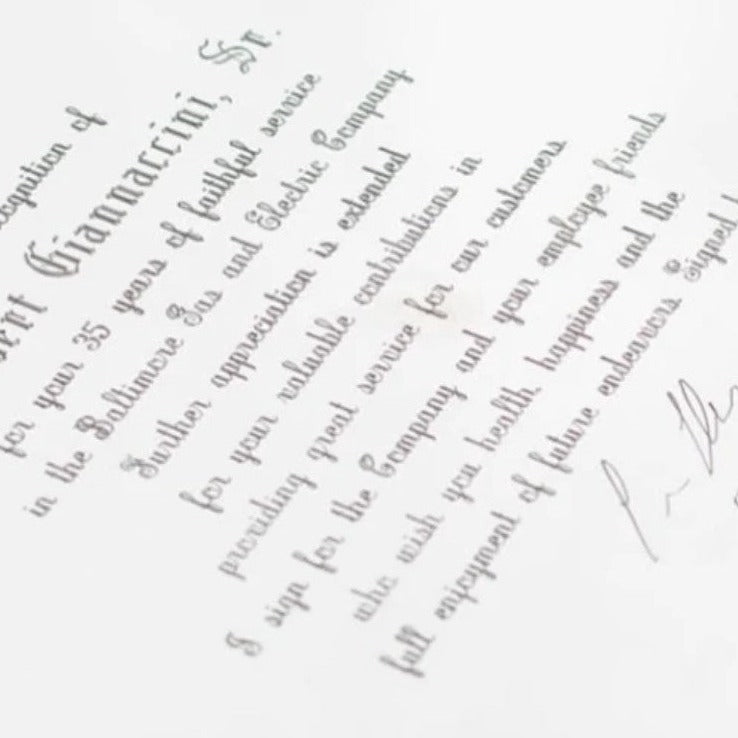 of
Giannaccini, Sr.
for your 35 years of faithful service
in the Baltimore Gas and Electric Company
Further appreciation is extended
for your valuable contributions in
providing great service for our customers
I sign for the Company and your employee friends
who wish you health happiness and the
full enjoyment of future endeavors Signed